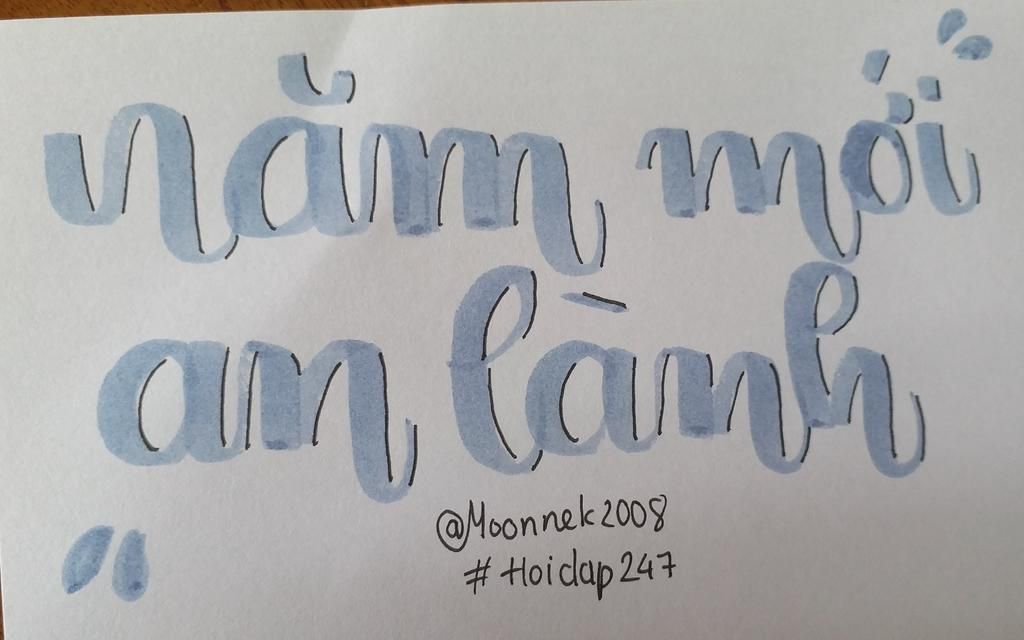 năm mới
an lành
@Moonnek2008
#Hoidap247